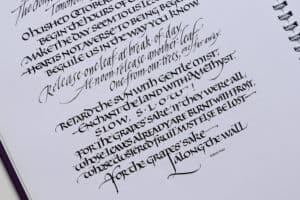 Tomorrow
O HUSHED OCTOBER
BEGIN THE HOURS OF
MAKE THE DAY SEEM TO US LESS
HEARTS NOT AVERSE TO BEING
BEGUILE US IN THE WAY YOU KNOW
Release one leaf at break of day
At noon release another leaf
One from our trees, one far away.
RETARD THE SUN WITH GENTLE MIST
ENCHANT THE LAND WITH AMETHYST.
SLOW, S·L·O·W!
FOR THE GRAPES' SAKE IF THEY WERE ALL
WHOSE LEAVES ALREADY ARE BURNT WITH FROST
WHOSE CLUSTERED FRUIT MUST ELSE BE LOST
For the grapes' sake
along the wall